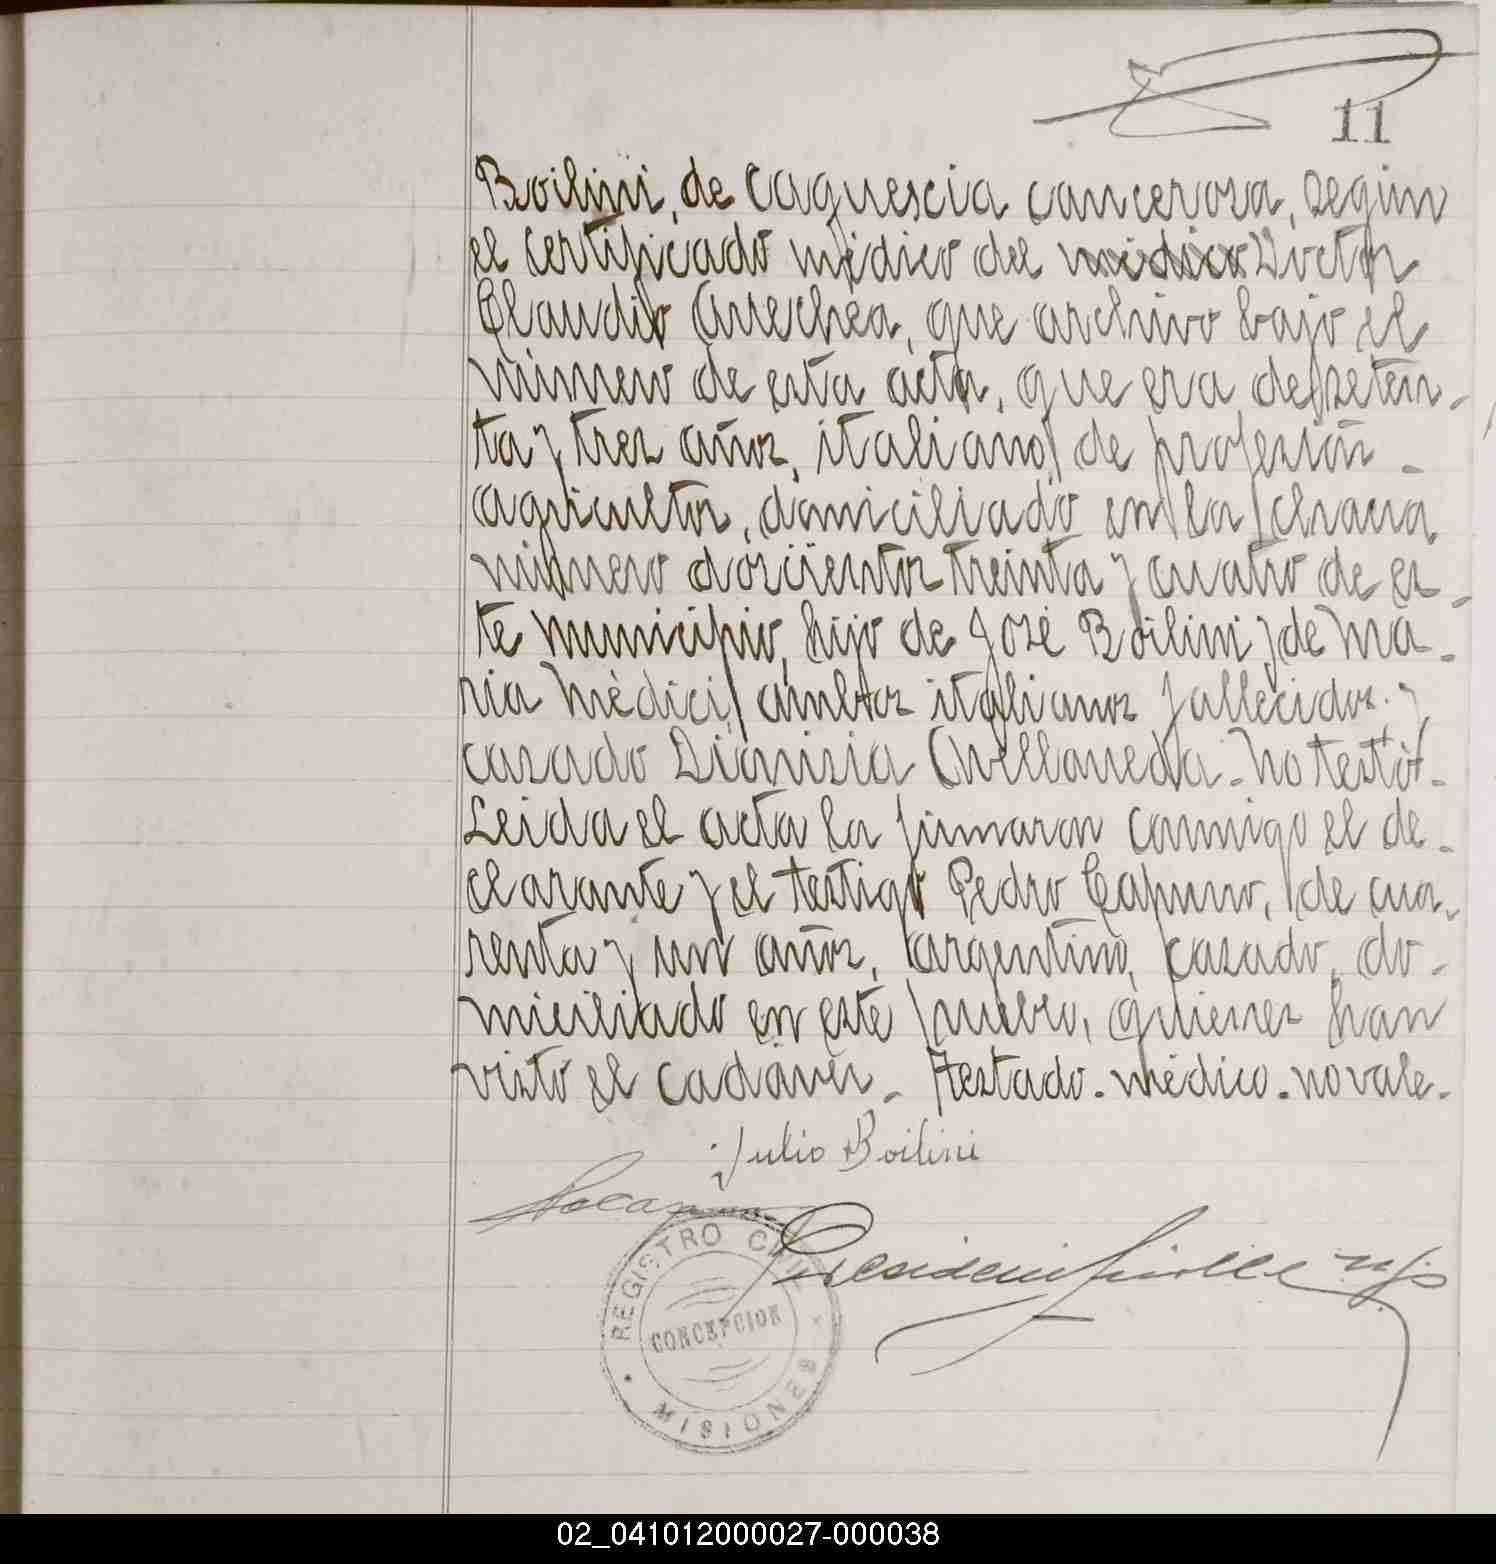 11
Boilini, de Caquescia cancerosa, según
el certificado médico del médico Doctor
Claudio Arrechea, que archivo bajo el
número de esta acta, que era de seten-
ta y tres años, italiano, de profesión
agricultor, domiciliado en la chacra
número doscientos treinta y cuatro de es-
te municipio, hijo de José Boilini y de Ma-
ria Médici, ambos italianos fallecidos. y
casado Dionisia Avellaneda - No testó -
Leida el acta la firmaron conmigo el de-
clarante y el testigo Pedro Capurro, de cua-
renta y un años, argentino, casado, do-
miciliado en este pueblo, quienes han
visto el cadáver - Testado - médico - no vale -
Julio Boilini
REGISTRO CIVIL
CONCEPCION
MISIONES
02_041012000027-000038